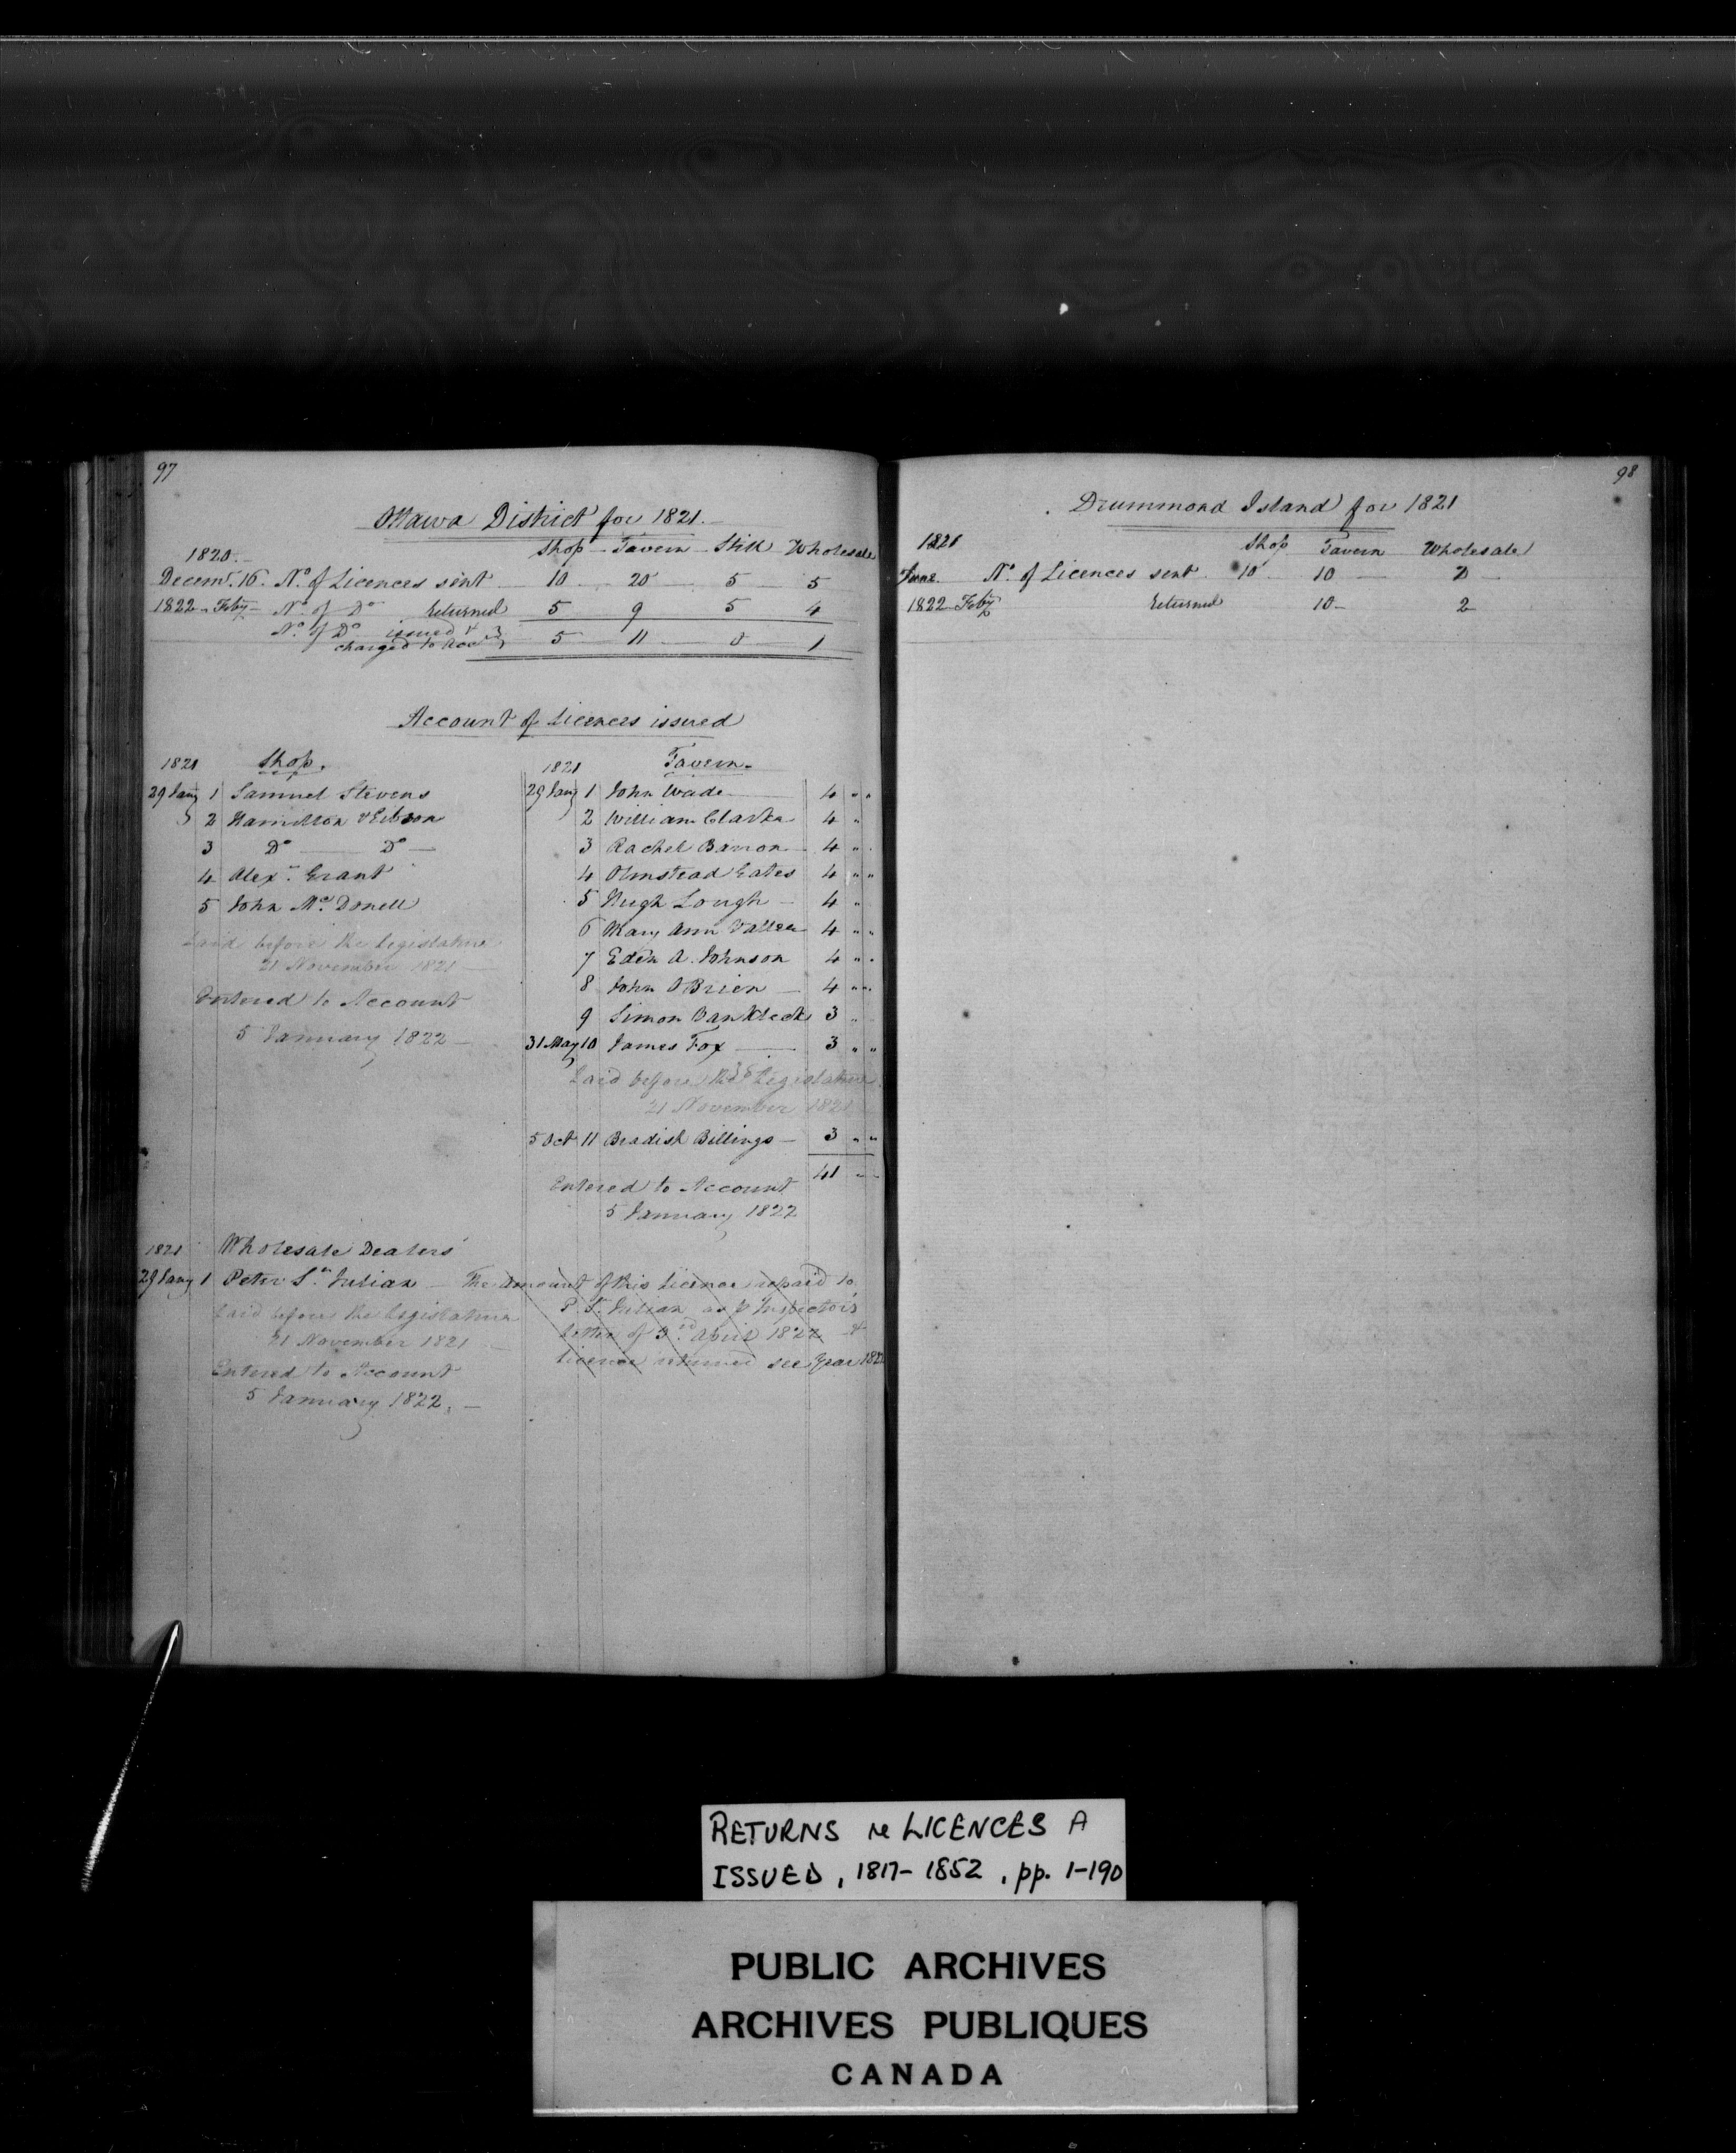 97
Ottawa District for 1821.
1820. Shop Tavern Still Wholesale
Decemr. 16. No. of Licences sent 10 20 5 5
1822 Feby No. of Do returned 5 9 5 4
No. of Do issued &
charged to Acct 5 11 0 1
Account of Licences issued
1821 Shop.
29 Jany 1 Samuel Stevens
2 Hamilton & Gibson
3 Do Do
4 Alexr. Grant
5 John Mc. Donell
Laid before the Legislature
21 November 1821
Entered to Account
5 January 1822
1821 Tavern.
29 Jany 1 John Wade 4 " "
2 William Clarke 4 "
3 Rachel Barron 4 " "
4 Olmstead Gates 4 " "
5 Hugh Lough 4 "
6 Mary Ann Vallee 4 " "
7 Eden A. Johnson 4 " "
8 John OBrien 4 " "
9 Simon VanKleek 3 "
31 May 10 James Fox 3 " "
Laid before the Legislature
21 November 1821
5 Oct 11 Bradish Billings 3 " "
41 " "
Entered to Account
5 January 1822
1821 Wholesale Dealers
29 Jany 1 Peter St. Julian The amount of this licence repaid to
P. St. Julian as p Inspector's
letter of 3rd April 1822 &
licence returned see Year 1822
Laid before the Legislature
21 November 1821
Entered to Account
5 January 1822.
98
Drummond Island for 1821
1821 Shop Tavern Wholesale
June No. of Licences sent 10 10 2
1822 Feby Returned 10 2
RETURNS re LICENCES A
ISSUED, 1817-1852, pp. 1-190
PUBLIC ARCHIVES
ARCHIVES PUBLIQUES
CANADA